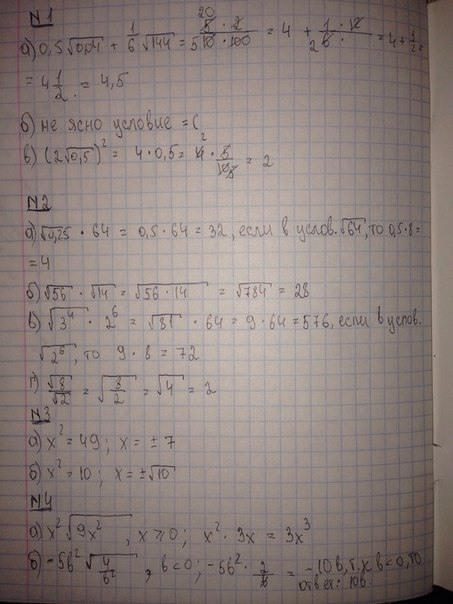 N1
а) 0,5√0,04 + 1/6 √144 = 5/10 · 2/100 = 4 + 1·12/6 = 4 + 1/2 =
= 4 1/2 = 4,5
б) не ясно условие =(
в) (2√0,5)² = 4·0,5 = 4 · 5/10 = 2
N2
а) √0,25 · 64 = 0,5·64 = 32, если в услов. √64, то 0,5·8=
=4
б) √56 · √14 = √56·14 = √784 = 28
в) √3⁴ · 2⁶ = √81 · 64 = 9·64 = 576, если в услов.
√2⁶, то 9·8 = 72
г) √8/√2 = √8/2 = √4 = 2
N3
а) x² = 49; x = ±7
б) x² = 10; x = ±√10
N4
а) x²√9x², x⩾0; x²·3x = 3x³
б) -5b²√4/b², b<0; -5b² · 2/b = -10b, т.к b<0, то
ответ: 10b.